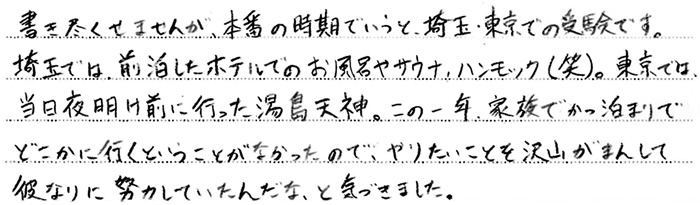 書き尽くせませんが、本番の時期でいうと、埼玉・東京での受験です。
埼玉では、前泊したホテルでのお風呂やサウナ、ハンモック(笑)。東京では、
当日夜明け前に行った湯島天神。この一年、家族でかつ泊まりで
どこかに行くということがなかったので、やりたいことを沢山がまんして
彼なりに努力していたんだな、と気づきました。